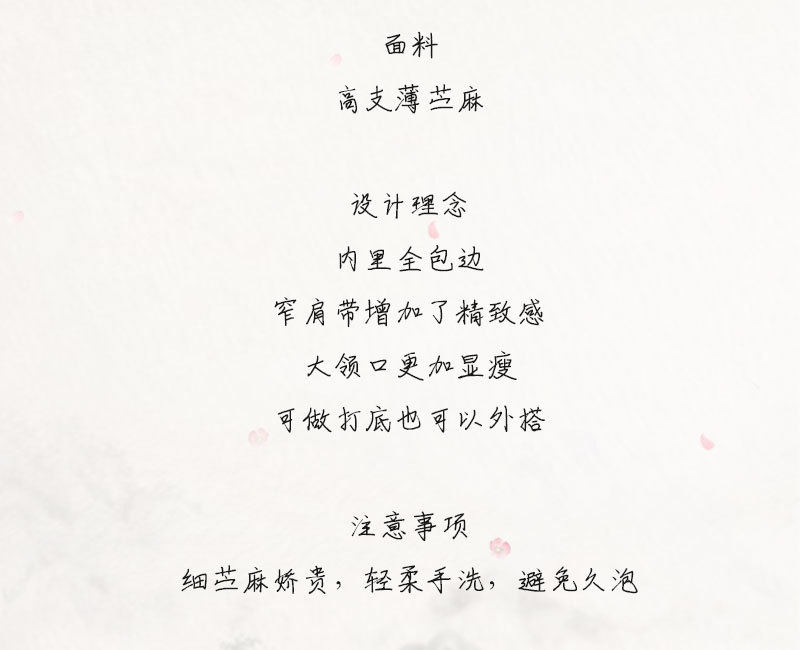 面料
高支薄苎麻
设计理念
内里全包边
窄肩带增加了精致感
大领口更加显瘦
可做打底也可以外搭
注意事项
细苎麻娇贵，轻柔手洗，避免久泡